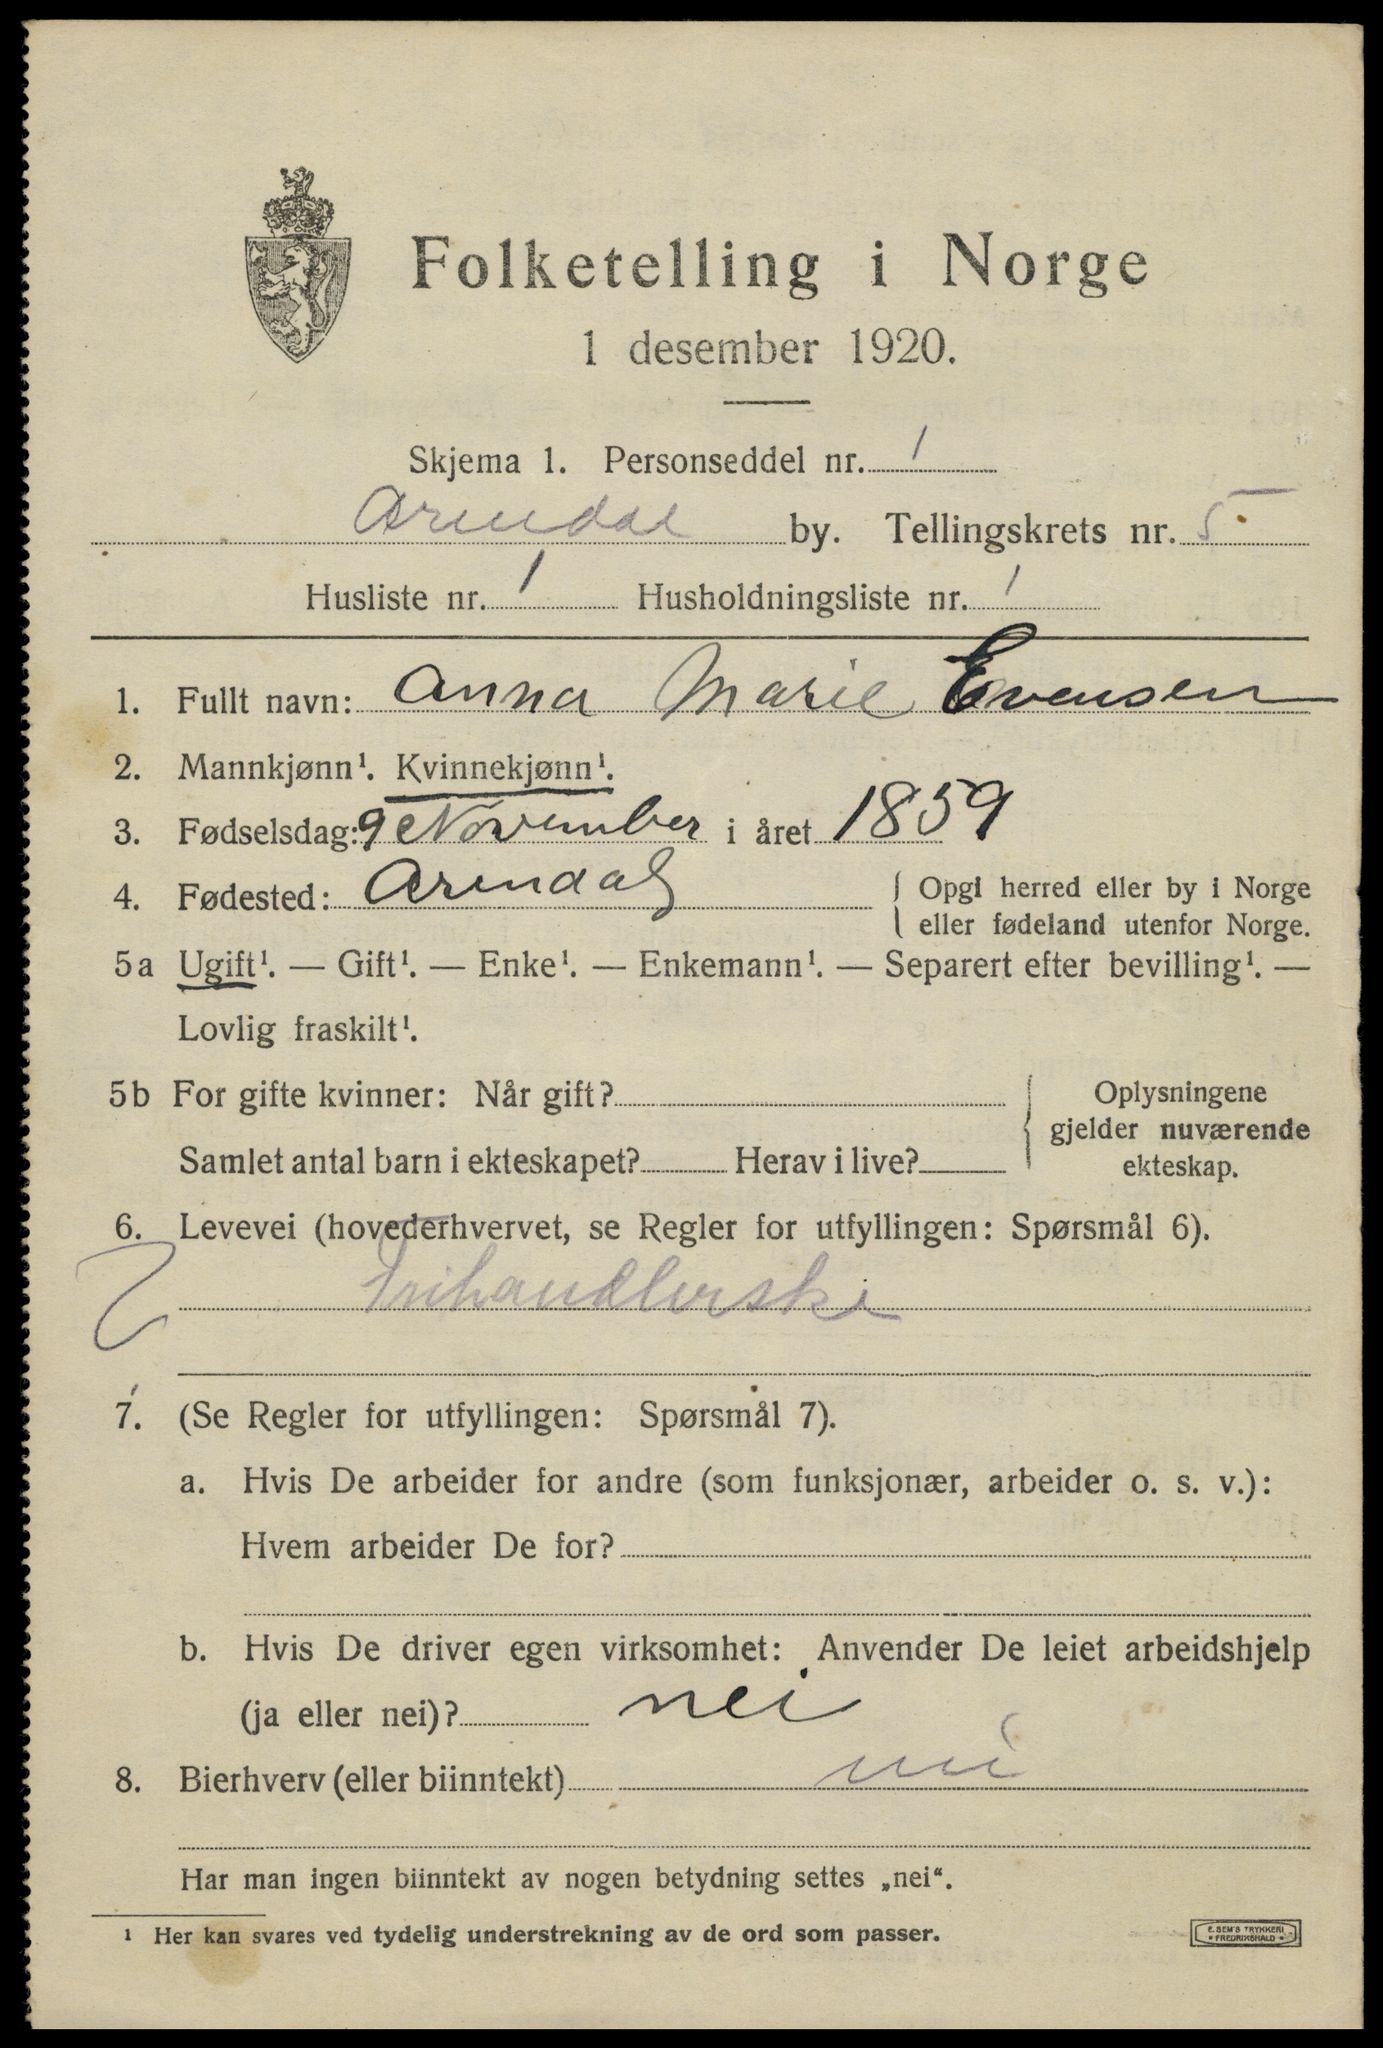 Folketelling i Norge
1 desember 1920.
Skjema 1. Personseddel nr. 1
Arendal by. Tellingskrets nr. 5
Husliste nr. 1 Husholdningsliste nr. 1
1. Fullt navn: Anna Marie Evensen
2. Mannkjønn¹. Kvinnekjønn¹.
3. Fødselsdag: 9 November i året 1859
4. Fødested: Arendal { Opgi herred eller by i Norge
eller fødeland utenfor Norge.
5a Ugift¹. — Gift¹. — Enke¹. — Enkemann¹. — Separert efter bevilling¹. —
Lovlig fraskilt¹.
5b For gifte kvinner: Når gift? { Oplysningene
gjelder nuværende
Samlet antal barn i ekteskapet? Herav i live? ekteskap.
6. Levevei (hovederhvervet, se Regler for utfyllingen: Spørsmål 6).
7. (Se Regler for utfyllingen: Spørsmål 7).
a. Hvis De arbeider for andre (som funksjonær, arbeider o. s. v.):
Hvem arbeider De for?
b. Hvis De driver egen virksomhet: Anvender De leiet arbeidshjelp
(ja eller nei)? nei
8. Bierhverv (eller biinntekt) nei
Har man ingen biinntekt av nogen betydning settes „nei“.
¹ Her kan svares ved tydelig understrekning av de ord som passer.
E. SEM'S TRYKKERI
* FREDRIKSHALD *